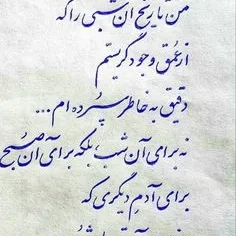 من تاریخ آن شبی را که
از عمق وجود گریستم
دقیق به خاطر سپرده ام...
نه برای آن شب، بلکه برای آن صبح
برای آدم دیگری که